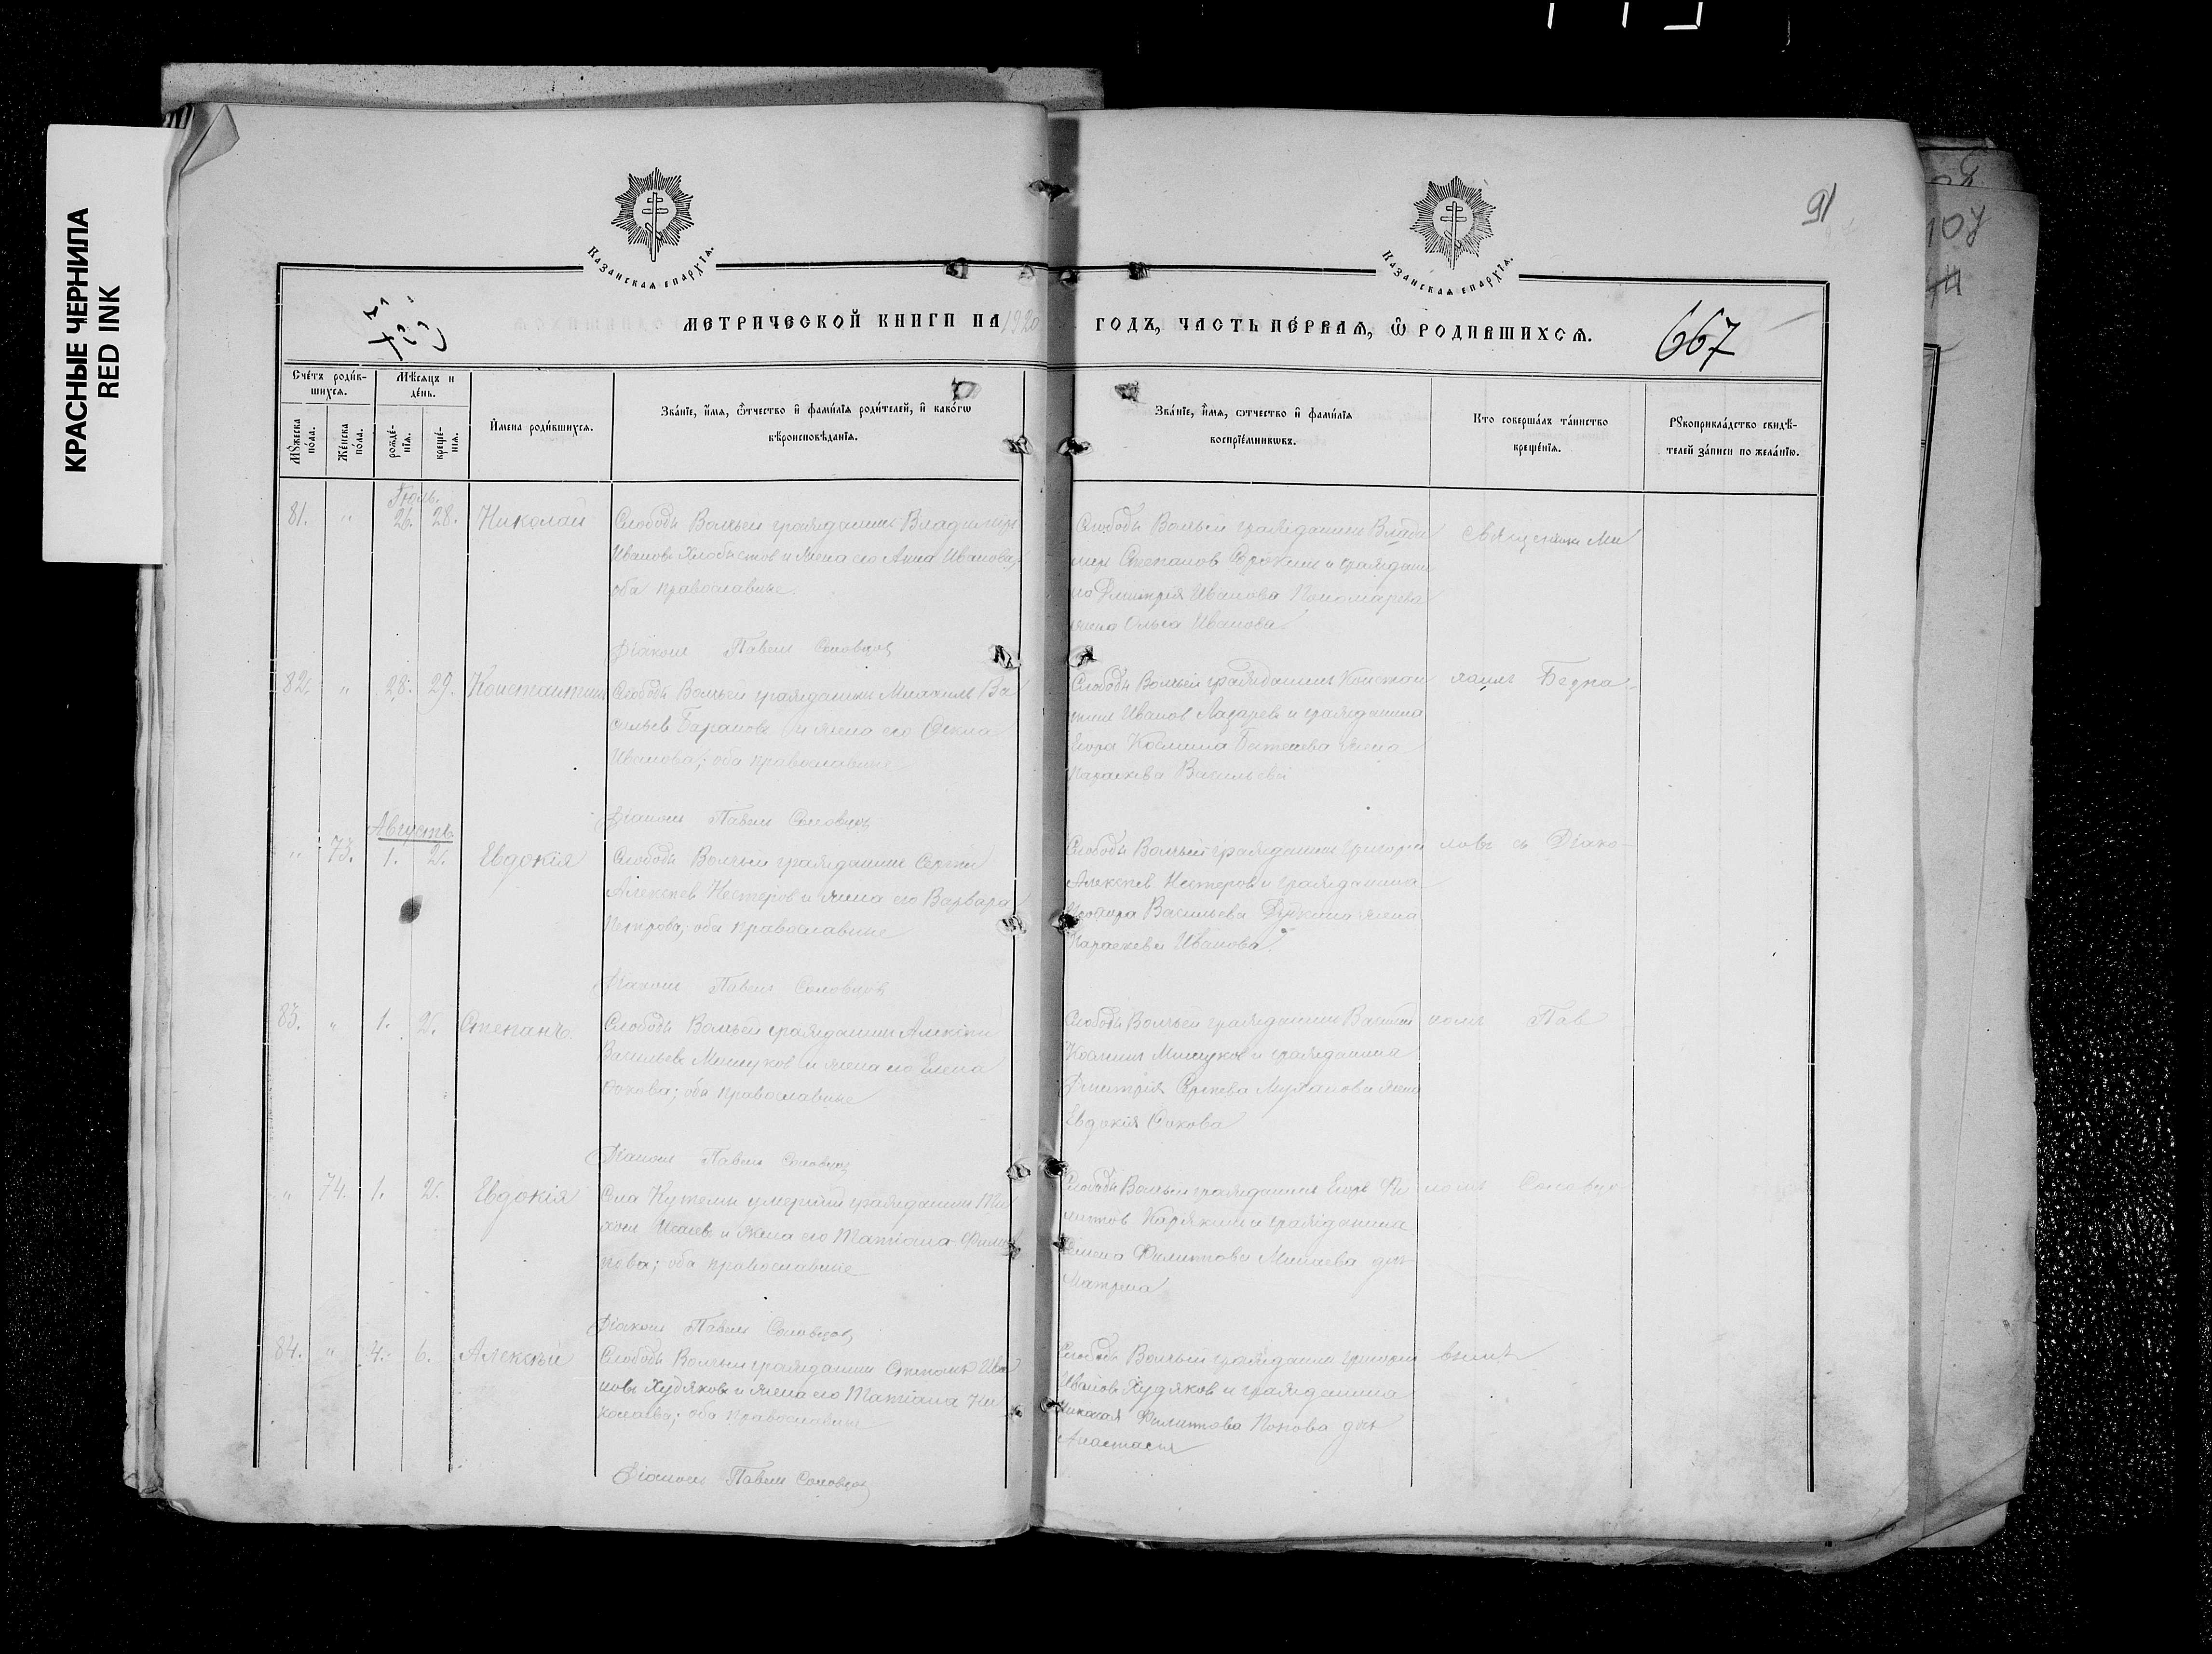 КРАСНЫЕ ЧЕРНИЛА
RED INK
91
107
Казанская епархїя.
Казанская епархїя.
МЕТРИЧЕСКОЙ КНИГИ НА 1920
ГОДЪ, ЧАСТЬ ПЕРВАЯ, Ѿ РОДИВШИХСЯ.
667
Счетъ родив-
шихся.
Мѣсяцъ и
день.
Мꙋжеска
пола.
Женска
пола.
рожде-
нїя.
креще-
нїя.
Имена родившихся.
Званїе, имя, ѿчество и фамилїя родителей, и какогѡ
вѣроисповѣданїя.
Званїе, имя, ѿчество и фамилїя
воспрїемникѡвъ.
Кто совершалъ таинство
крещенїя.
Рꙋкоприкладство свидѣ-
телей записи по желанїю.
Іюль.
81. " 26. 28. Николай
Слободы Волчьей гражданинъ Владимиръ
Ивановъ Хлобыстов и жена его Анна Иванова,
оба православные.
Діаконъ Павелъ Соловцов
Слободы Волчьей гражданинъ Влади
мир Степанов и граждани
на Дмитрія Иванова Пономарева
жена Ольга Иванова
Священник Ми
82. " 28. 29. Константинъ
Слободы Волчьей гражданин Михаилъ Ва
сильев Баранов и жена его Фекла
Иванова; оба православные
Діаконъ Павелъ Соловцов
Слободы Волчьей гражданинъ Констан
тин Иванов Лазарев и гражданина
Егора Косьмина жена
Параскева Васильева
хаилъ Бедна-
Августъ
" 73. 1. 2. Евдокія
Слободы Волчьей гражданинъ Сергей
Алексеев Нестеров и жена его Варвара
Петрова; оба православные
Діаконъ Павелъ Соловцов
Слободы Волчьей гражданин Григорий
Алексеев Нестеров и гражданина
Васильева жена
Параскева Иванова
ловъ съ Діако-
83. " 1. 2. Степанъ
Слободы Волчьей гражданин Алексей
Васильев и жена его Елена
оба православные
Діаконъ Павелъ Соловцов
Слободы Волчьей гражданинъ Василий
и гражданина
Дмитрія Сергеева жена
Евдокія
номъ Пав
" 74. 1. 2. Евдокія
Села Кутемы умерший гражданин Ти
хон Исаев и жена его Татіана Филип
пова; оба православные
Діаконъ Павелъ Соловцов
Слободы Волчьей гражданинъ Егоръ Фи
липпов Карякин и гражданина
Филиппова Минаева дочь
Матрена
ломъ Соловцо-
84. " 4. 6. Алексѣй
Слободы Волчьей гражданин Степанъ Ива
новъ Худяков и жена его Татіана Ни
колаева; оба православные
Діаконъ Павелъ Соловцов
Слободы Волчьей гражданин Григорий
Иванов Худяков и гражданина
Николая Филиппова Попова дочь
Анастасія
вымъ